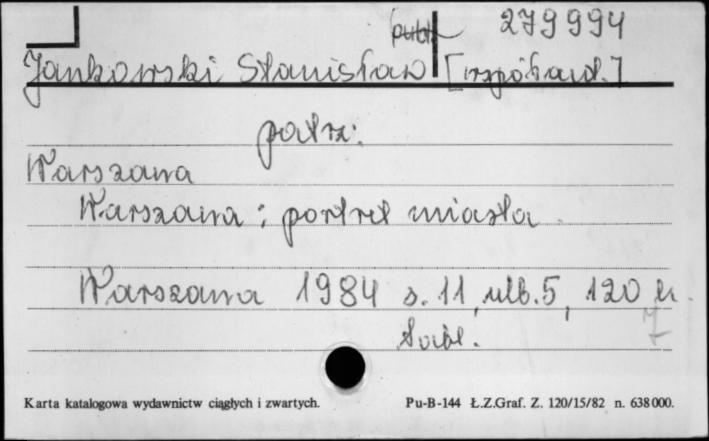 279994
Jankowski Stanisław [współaut.]
patrz:
Warszawa
Warszawa : portret miasta
Warszawa 1984 s. 11, nlb. 5, 120 il.
Karta katalogowa wydawnictw ciągłych i zwartych. Pu-B-144 Ł.Z.Graf. Z. 120/15/82 n. 638000.